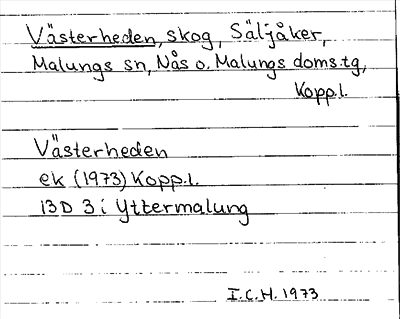 Västerheden, skog, Säljåker,
Malungs sn, Nås o. Malungs doms.tg,
Kopp.l.
Västerheden
ek (1973) Kopp.l.
13D 3i Yttermalung
I.C.H. 1973